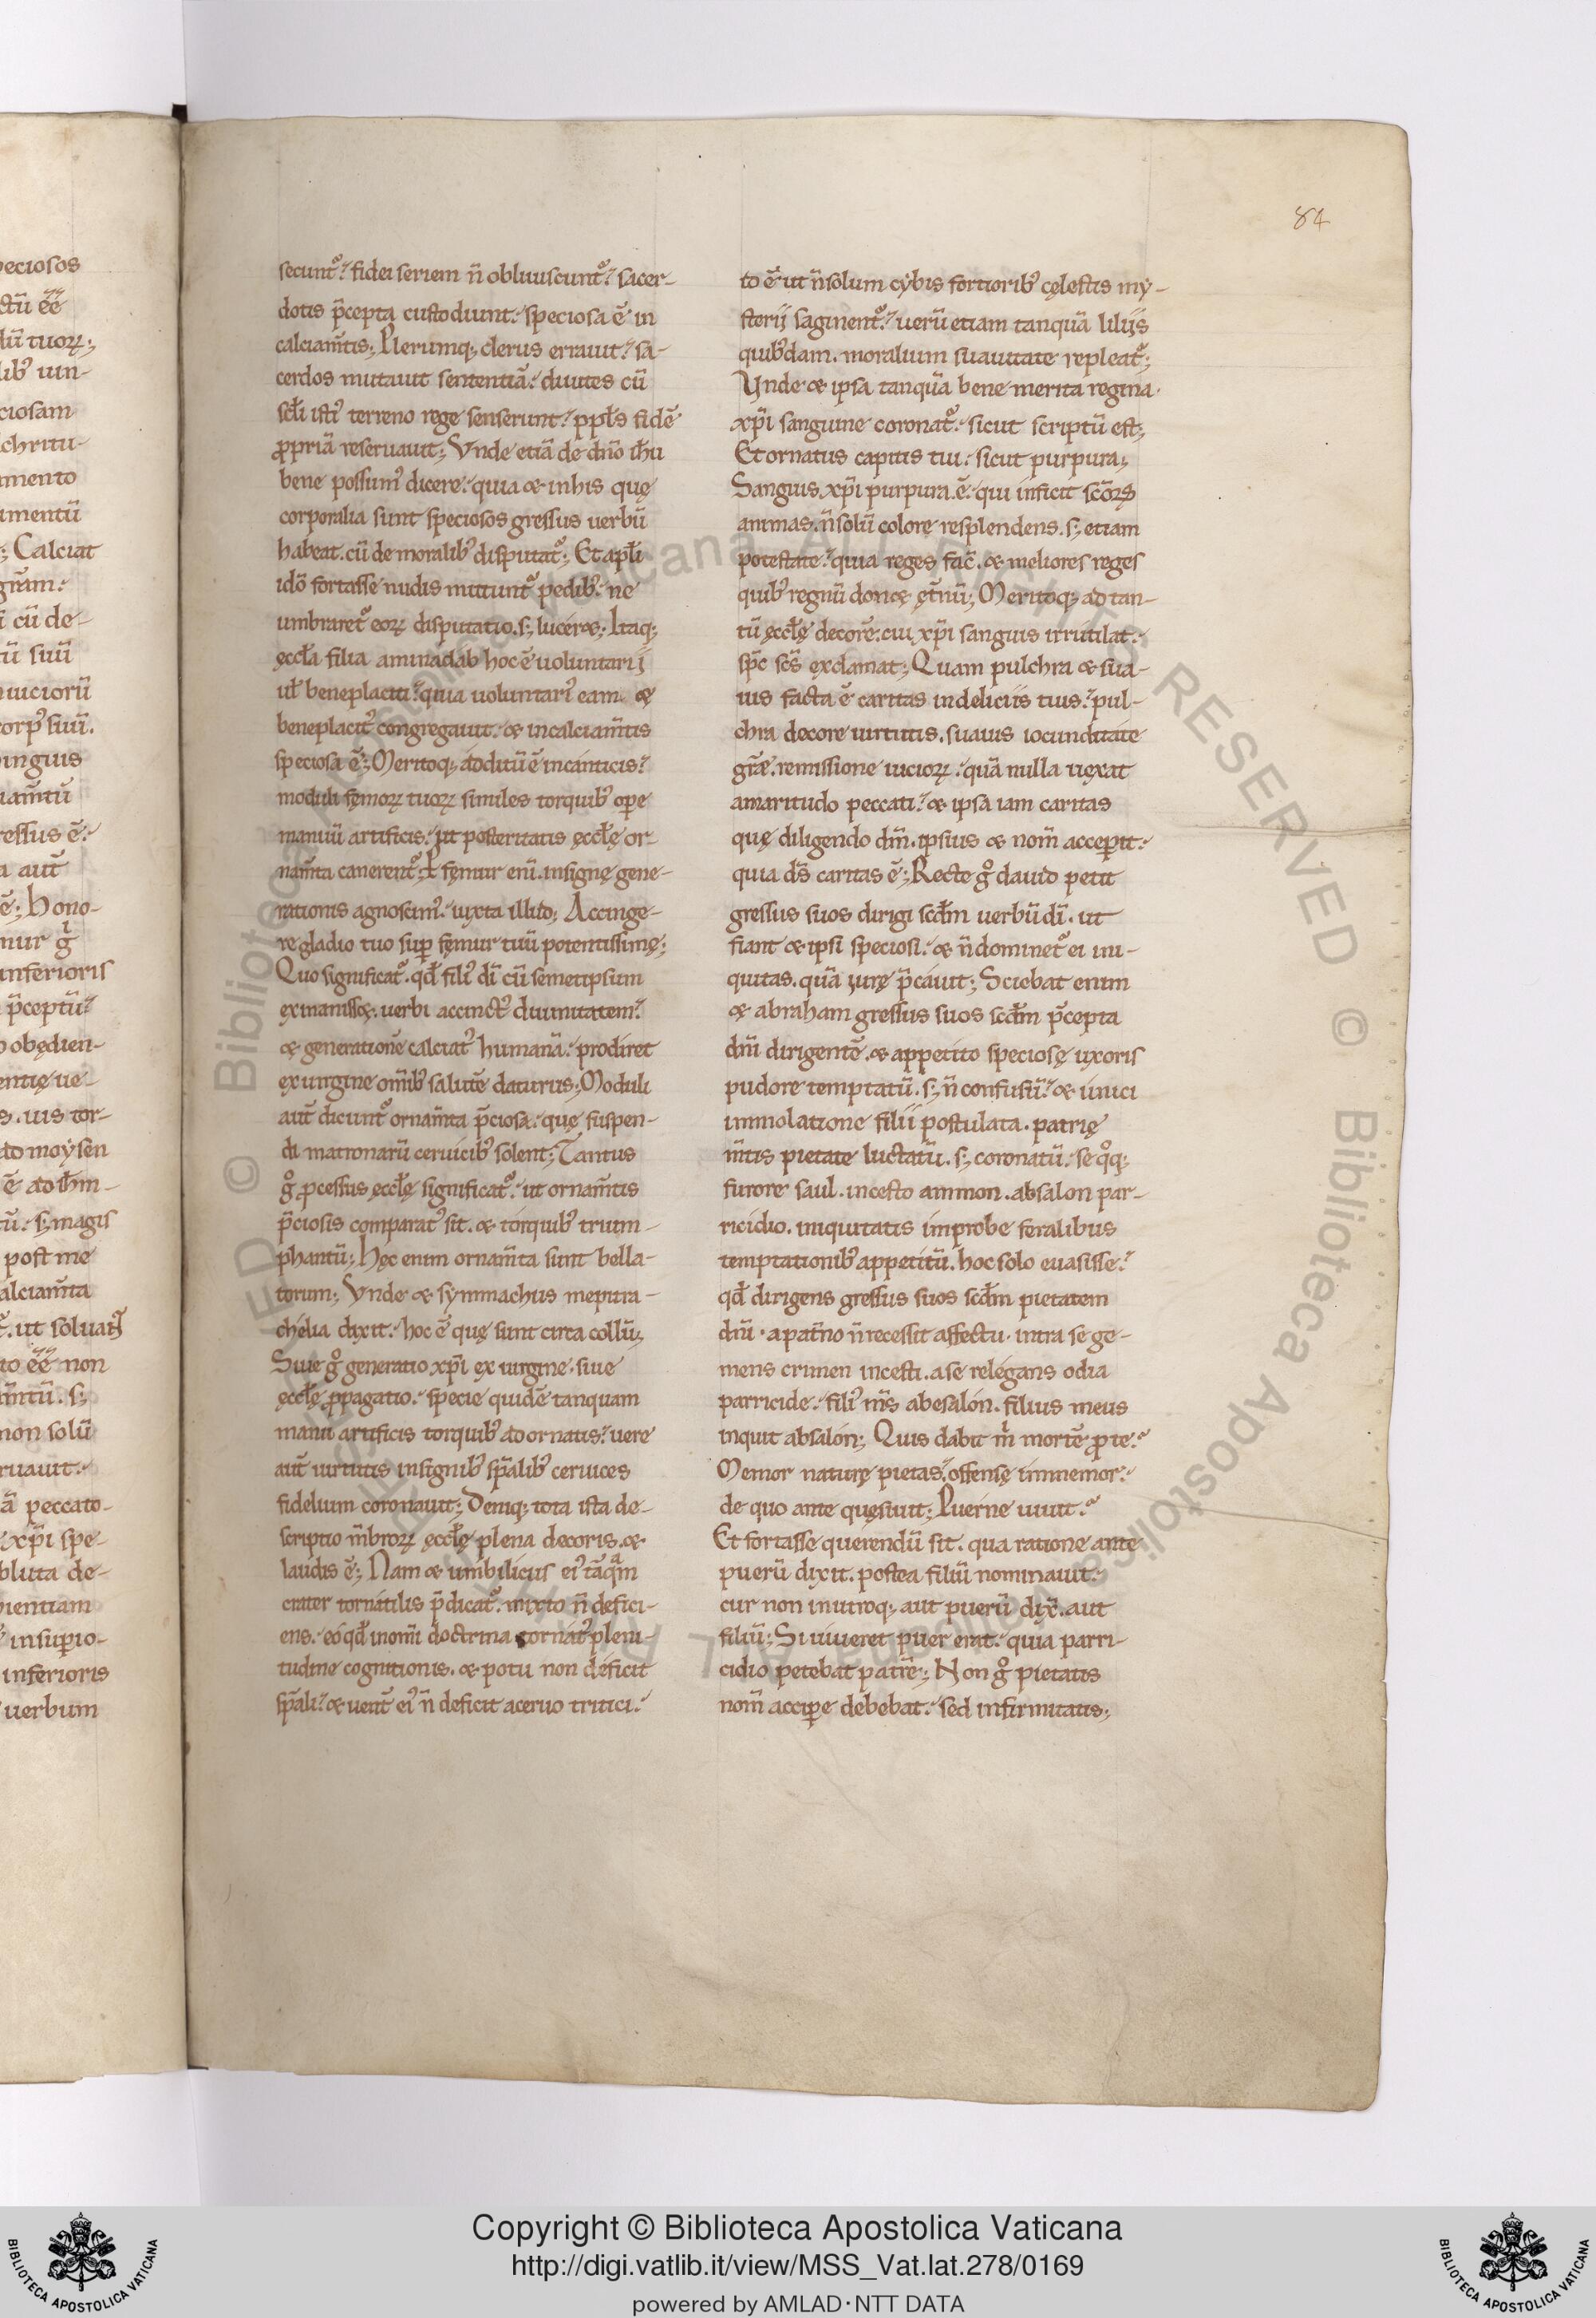 84
secunt᷒. fidei seriem n̄ obliuiscunt᷒. sacer-
dotis p̄cepta custodiunt. speciosa ē in
calciam̄tis; Plerumq; clerus errauit. sa-
cerdos mutauit sententiā. diuites cū
scł̄i isti᷒ terreno rege senserunt. ppl̄s fidē
ꝓpriā reseruauit; Vnde etiā de dn̄o ih̄u
bene possum᷒ dicere. quia & in his quę
corporalia sunt speciosos gressus uerbū
habeat. cū de moralib᷒ disputat᷒; Et apł̄i
idō fortasse nudis mittunt᷒ pedib᷒. ne
umbraret᷒ eoꝝ disputatio. s; lucer&; Itaq;
ęccł̄a filia aminadab hoc ē uoluntarii
ul̄ beneplaciti. quia uoluntari᷒ eam &
beneplacit᷒ congregauit. & in calciam̄tis
speciosa ē; Meritoq; additū ē in canticis.
moduli femoꝝ tuoꝝ similes torquib᷒ oꝑe
manuū artificis. ut posteritatis ęccł̄ę or-
nam̄ta canerent᷒. P femur eni᷒. insigne gene-
rationis agnoscim᷒. iuxta illud; Accinge-
re gladio tuo suꝑ femur tuū potentissimę;
Quo significat᷒. qd̄ fili᷒ dī cū semetipsum
exinaniss&. uerbi accinct᷒ diuinitatem.
& generationē calciat᷒ humanā. prodiret
ex uirgine om̄ib᷒ salutē daturus; Moduli
aut̄ dicunt᷒ ornam̄ta p̄ciosa. quę suspen-
di matronarū ceruicib᷒ solent; Tantus
g᷒ ꝓcessus ęccł̄ę significat᷒. ut ornam̄tis
p̄ciosis comparat᷒ sit. & torquib᷒ trium-
phantū; hęc enim ornam̄ta sunt bella-
torum; Vnde & symmachus mepira-
chelia dixit. hoc ē quę sunt circa collū;
Siue g᷒ generatio xp̄i ex uirgine. siue
ęccł̄ę ꝓpagatio. specie quidē tanquam
manu artificis torquib᷒ adornatis. uere
aut̄ uirtutis insignib᷒ sp̄alib᷒ ceruices
fidelium coronauit; Deniq; tota ista de-
scriptio m̄broꝝ ęccł̄ę plena decoris. &
laudis ē; Nam & umbilicus ei᷒ tāqm
crater tornatilis p̄dicat᷒. mixto n̄ defici-
ens. eo qd̄ in om̄i doctrina tornat᷒ pleni-
tudine cognitionis. & potu non deficit
sp̄ali. & uent̄ ei᷒ n̄ deficit aceruo tritici.
to ē ut n̄ solum cybis fortiorib᷒ cęlestis my-
sterij saginent᷒. uerū etiam tanquā lilijs
quib᷒dam. moralium suauitate repleat᷒;
Vnde & ipsa tanquā bene merita regina.
xp̄i sanguine coronat᷒. sicut scriptū est;
Et ornatus capitis tui. sicut purpura;
Sanguis xp̄i purpura ē. qui inficit scō ꝝ
animas. n̄ solū colore resplendens. s; etiam
potestate. quia reges fac̄. & meliores reges
quib᷒ regnū don& ęt̄nū; Meritoq; ad tan-
tū ęccł̄ę decorē. cui xp̄i sanguis irrutilat.
sp̄c sc̄s exclamat; Quam pulchra & sua-
uis facta ē caritas in deliciis tuis. pul-
chra decore uirtutis. suauis iocunditate
grā̄ę. remissione uicioꝝ. quā nulla uexat
amaritudo peccati. & ipsa iam caritas
quę diligendo dm̄. ipsius & nom̄ acceꝑit.
quia ds̄ caritas ē; Recte g᷒ dauid petit
gressus suos dirigi scd̄m uerbū dī. ut
fiant & ipsi speciosi. & n̄ dominet᷒ ei ini-
quitas. quā iure p̄cauit; Sciebat enim
& abraham gressus suos scd̄m p̄cepta
dn̄i dirigentē. & appetito speciosę uxoris
pudore temptatū. s; n̄ confusū. & unici
immolatione filii postulata. patrię
m̄tis pietate luctatū. s; coronatū. se q᷒q;
furore saul. incesto ammon. absalon par-
ricidio. iniquitatis improbe feralibus
temptationib᷒ appetitū. hoc solo euasisse.
qd̄ dirigens gressus suos scd̄m pietatem
dn̄i. a pat̄no n̄ recessit affectu. intra se ge-
mens crimen incesti. a se relegans odia
parricide. fili᷒ m̄s abesalón. filius meus
inquit absalón; Quis dabit m̄ mortē ꝓ te.
Memor naturę pietas. offensę immemor.
de quo ante quęsiuit; Puerne uiuit.
Et fortasse querendū sit. qua ratione ante
puerū dixit. postea filiū nominauit.
cur non in utroq; aut puerū dix̄. aut
filiū; Si uiueret puer erat. quia parri-
cidio petebat patrē; Non g᷒ pietatis
nom̄ acciꝑe debebat. sed infirmitatis;
Copyright © Biblioteca Apostolica Vaticana
http://digi.vatlib.it/view/MSS_Vat.lat.278/0169
powered by AMLAD·NTT DATA
BIBLIOTECA APOSTOLICA VATICANA
BIBLIOTECA APOSTOLICA VATICANA